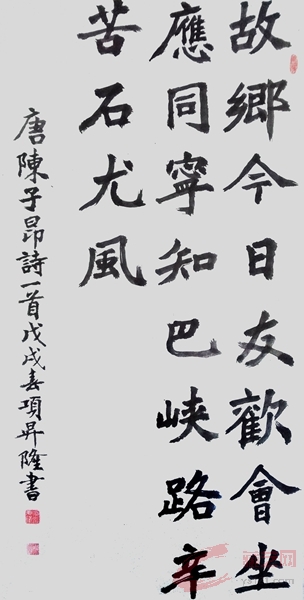 故鄉今日友歡會坐
應同寧知巴峽路辛
苦石尤風
唐陳子昂詩一首戊戌春項昇隆書